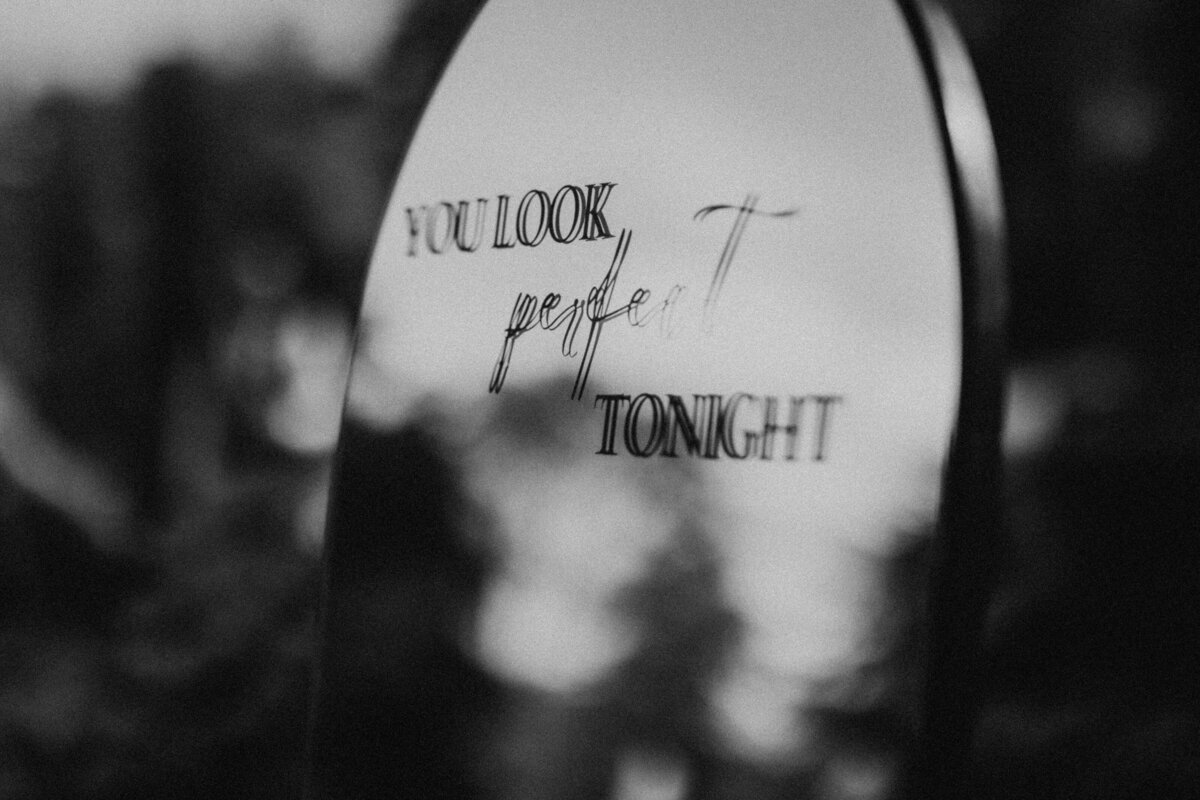 YOU LOOK
perfect
TONIGHT